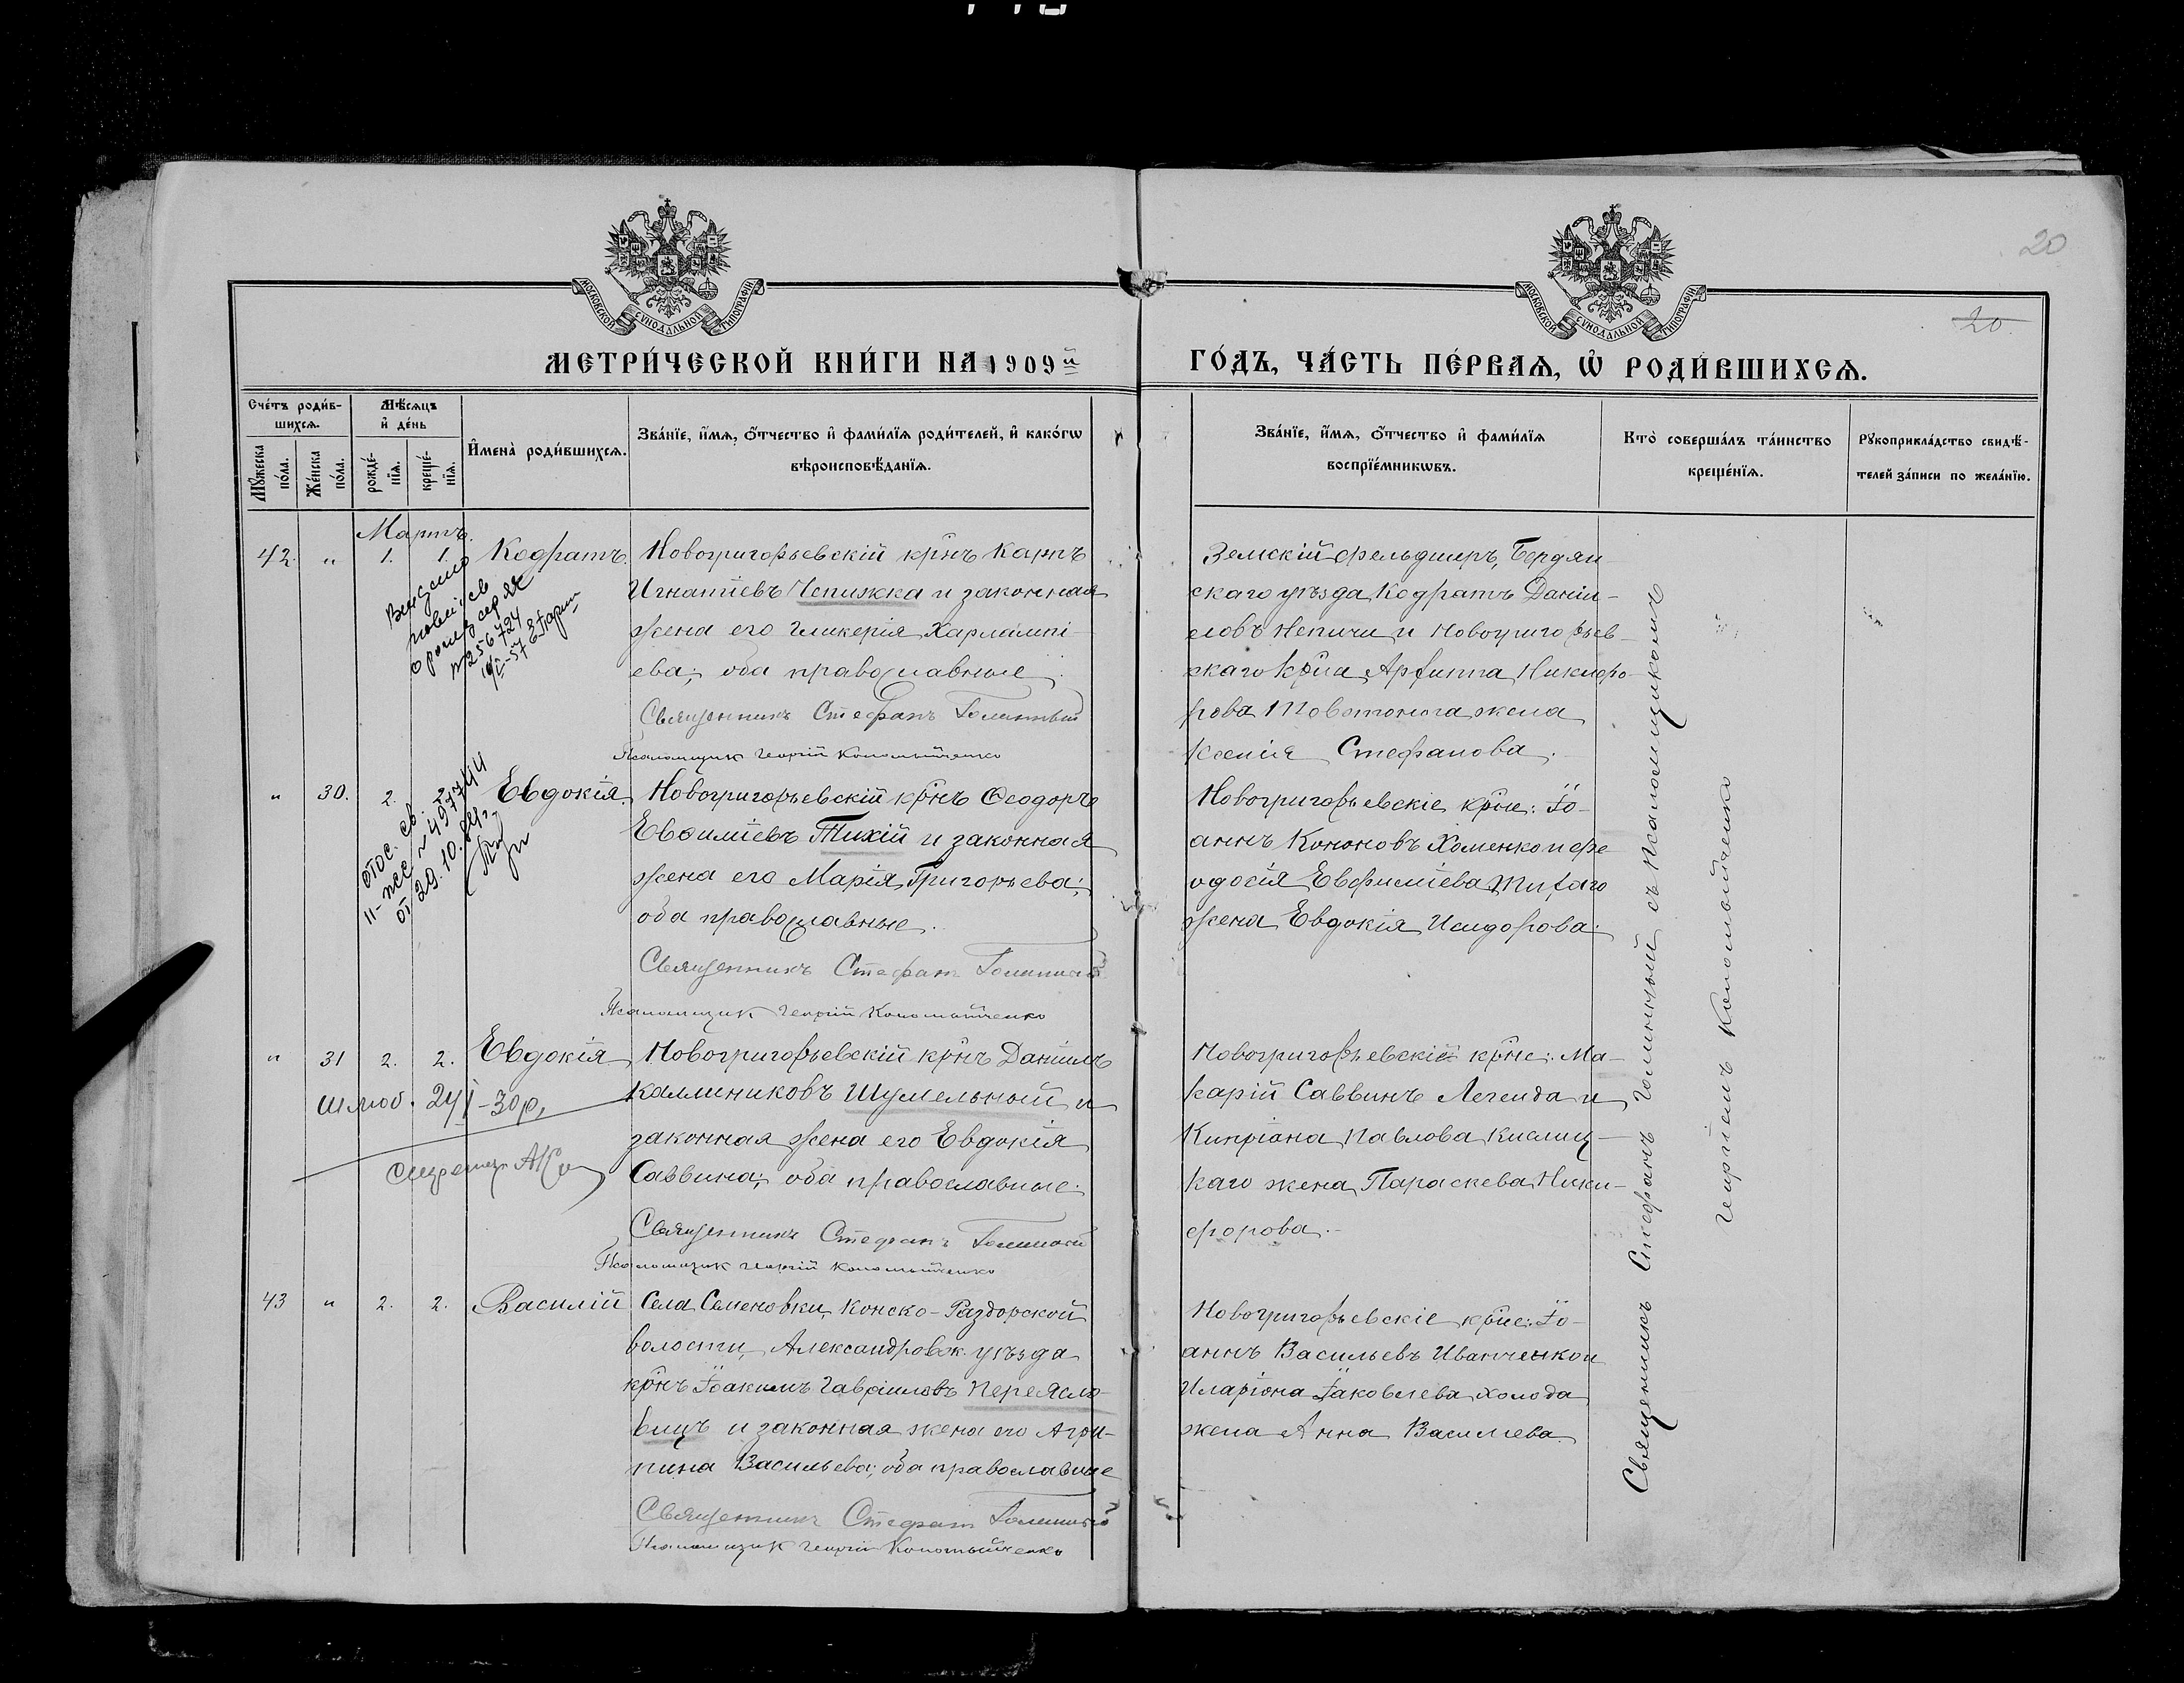 20
20.
МОСКОВСКОЙ СѴНОДАЛЬНОЙ ТИПОГРАФІИ
МОСКОВСКОЙ СѴНОДАЛЬНОЙ ТИПОГРАФІИ
МЕТРИ́ЧЕСКОЙ КНИ́ГИ НА 1909й
ГО́ДЪ, ЧА́СТЬ ПЕ́РВАѦ, Ѡ РОДИ́ВШИХСѦ.
Сче́тъ роди́в-
шихсѧ.
Мꙋ́жеска
по́ла.
Же́нска
по́ла.
Мѣ́сѧцъ
и҆ де́нь
рожде́-
нїѧ.
креще́-
нїѧ.
И҆мена̀ роди́вшихсѧ.
Зва́нїе, и҆́мѧ, ѻ҆́тчество и҆ фами́лїѧ роди́телей, и҆ како́гѡ
вѣроисповѣ́данїѧ.
Зва́нїе, и҆́мѧ, ѻ҆́тчество и҆ фами́лїѧ
воспрїе́мникѡвъ.
Кто̀ соверша́лъ та́инство
креще́нїѧ.
Рꙋкоприкла́дство свидѣ́-
телей за́писи по жела́нїю.
Мартъ.
42. „ 1. 1. Кодратъ. Новогригорьевскій кр̃нъ Карпъ
Игнатіевъ Чепижка и законная
жена его Гликерія Харлампі-
ева; оба православные.
Священникъ Стефанъ
Псаломщик Георгій Коломыйченко
Земскій фельдшеръ, Бердян-
скаго уѣзда Кодратъ Даніи-
ловъ и Новогригорьев-
скаго кр̃на Архиппа Никифо-
рова жена
Ксенія Стефанова.
№ 256724
„ 30. 2. 2. Евдокія. Новогригорьевскій кр̃нъ Ѳеодоръ
Евѳиміевъ Тихій и законная
жена его Марія Григорьева;
оба православные.
Священникъ Стефанъ
Псаломщик Георгій Коломыйченко
Новогригорьевскіе кр̃не: Іо-
аннъ Кононовъ Хоменко и Ѳе-
одосія Евфиміева Тихаго
жена Евдокія Исидорова.
29.10.
„ 31 2. 2. Евдокія Новогригорьевскій кр̃нъ Даніилъ
Каллиниковъ Шумельный и
законная жена его Евдокія
Саввина; оба православные.
Священникъ Стефанъ
Псаломщик Георгій Коломыйченко
Новогригорьевскіе кр̃не: Ма-
карій Саввинъ Легенда и
Кипріана Павлова Кислиц-
каго жена Параскева Ники-
форова.
шлюб.
43 „ 2. 2. Василій Села Семеновки, Конско-Раздорской
волости, Александровск. уѣзда
кр̃нъ Іоакимъ Гавріиловъ Переясло-
вецъ и законная жена его Агри-
пина Васильева; оба православные
Священникъ Стефанъ
Псаломщик Георгій Коломыйченко
Новогригорьевскіе кр̃не: Іо-
аннъ Васильевъ Иванченко и
Иларіона Іаковлева Холода
жена Анна Василіева.
Священникъ Стефанъ Голинный съ псаломщикомъ
Георгіемъ Коломыйченко